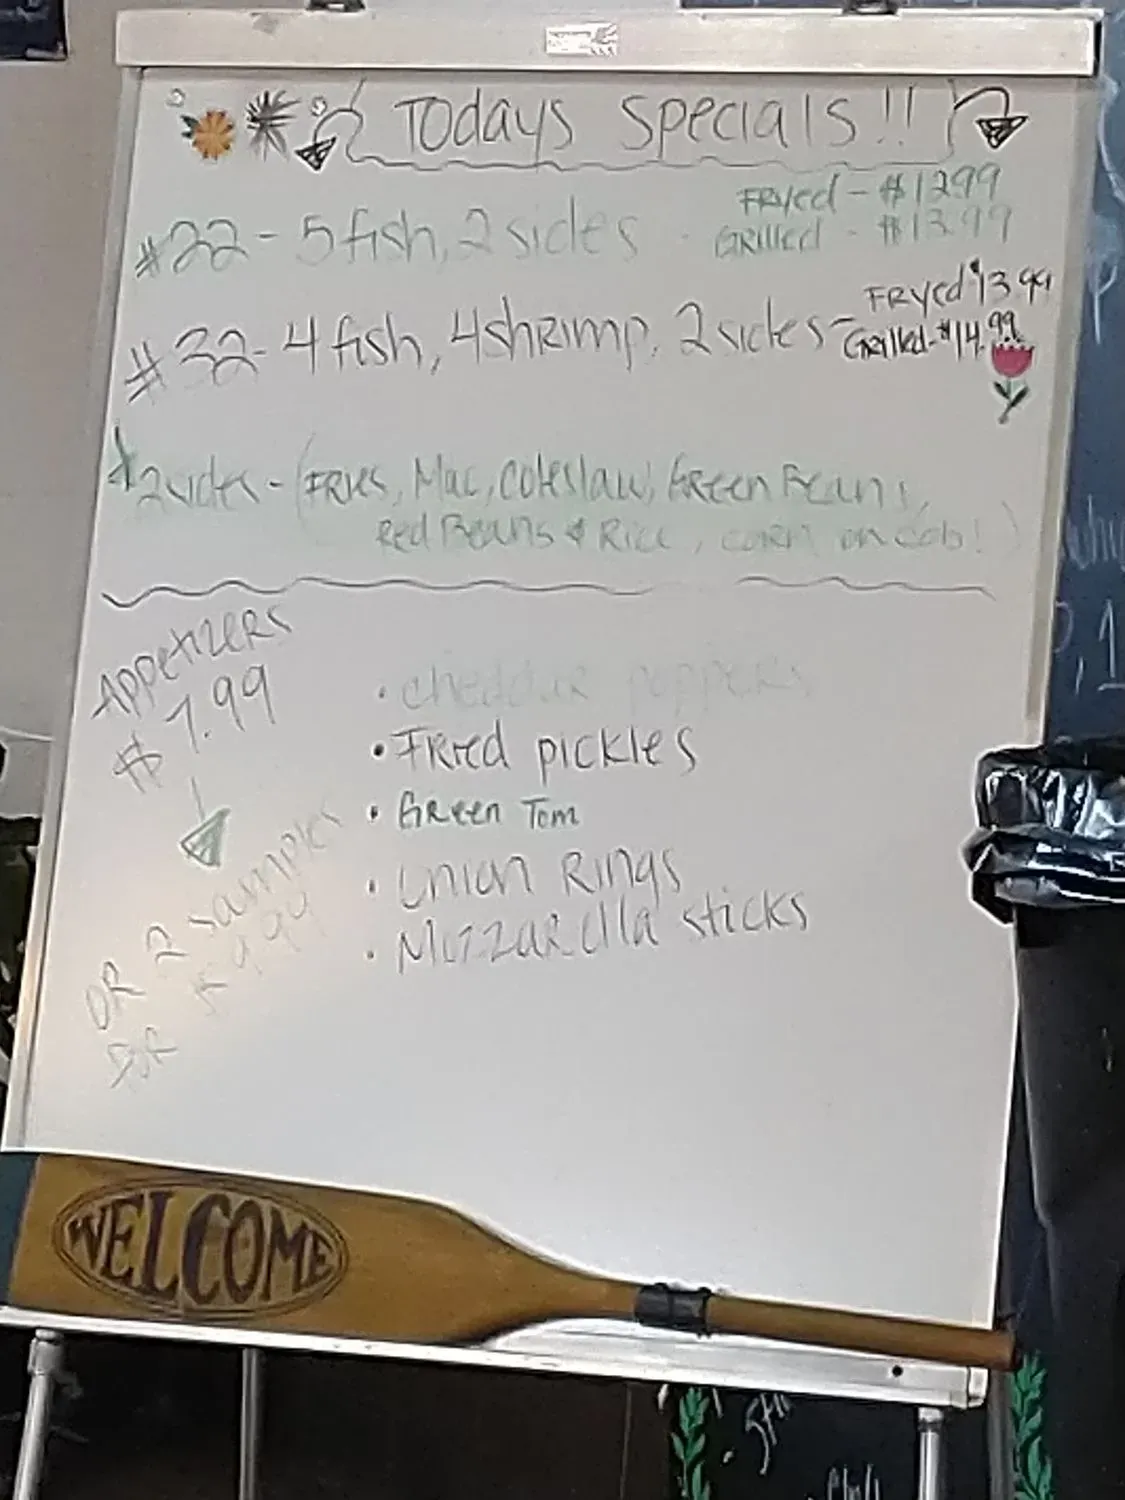 Todays Specials!!
#22 - 5 fish, 2 sides - Fryed - $12.99
Grilled - $13.99
#32 - 4 fish, 4 shrimp, 2 sides - Fryed $13.99
Grilled - $14.99
*2 sides - (Fries, Mac, Coleslaw, Green Beans,
Red Beans & Rice, corn on cob!)
Appetizers
$7.99
OR 2 samples
FOR $9.99
• cheddar poppers
• Fried pickles
• Green Tom
• Onion Rings
• Mozzarella sticks
WELCOME